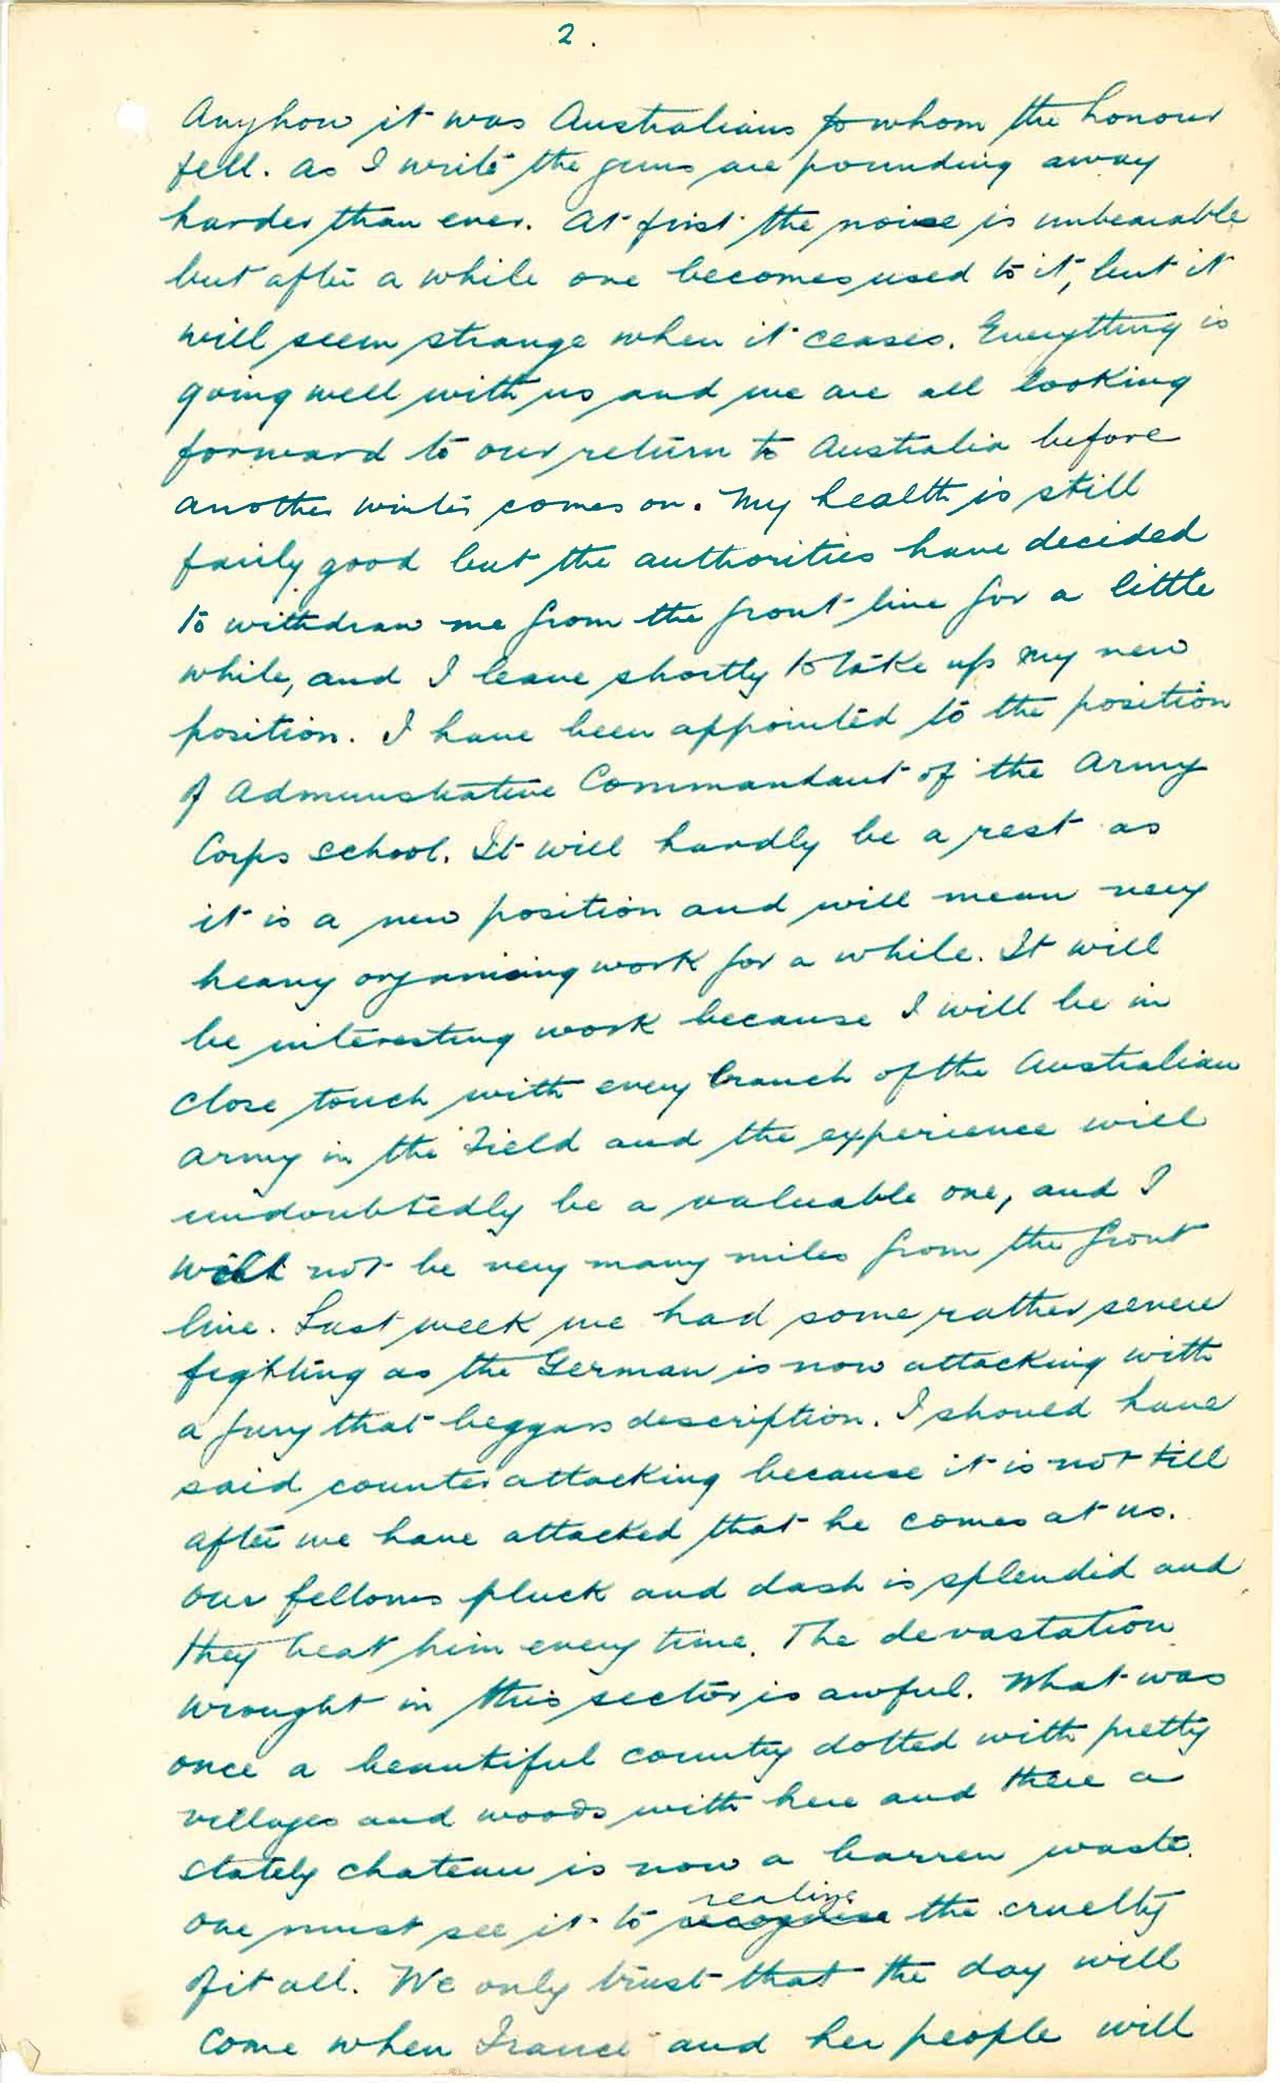 2.
Anyhow it was Australians to whom the honour
fell. As I write the guns are pounding away
harder than ever. At first the noise is unbearable
but after a while one becomes used to it, but it
will seem strange when it ceases. Everything is
going well with us and we are all looking
forward to our return to Australia before
another winter comes on. My health is still
fairly good but the authorities have decided
to withdraw me from the front line for a little
while, and I leave shortly to take up my new
position. I have been appointed to the position
of Administrative Commandant of the Army
Corps School. It will hardly be a rest as
it is a new position and will mean very
heavy organising work for a while. It will
be interesting work because I will be in
close touch with every branch of the Australian
Army in the Field and the experience will
undoubtedly be a valuable one, and I
will not be very many miles from the front
line. Last week we had some rather severe
fighting as the German is now attacking with
a fury that beggars description. I should have
said counter attacking because it is not till
after we have attacked that he comes at us.
Our fellows pluck and dash is splendid and
they beat him every time. The devastation
wrought in this sector is awful. What was
once a beautiful country dotted with pretty
villages and woods with here and there a
stately chateau is now a barren waste.
realize
One must see it to recognise the cruelty
of it all. We only trust that the day will
come when France and her people will